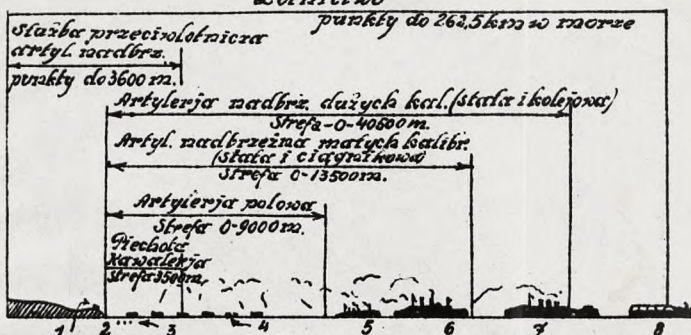 Lotnictwo
punkty do 262,5km w morze
Służba przeciwlotnicza
artyl. nadbrz.
punkty do 3600 m.
Artylerja nadbrz. dużych kal. (stała i kolejowa)
Strefa-0-40600m.
Artyl. nadbrzeżna małych kalibr.
(stała i ciągnikowa)
Strefa 0-13500m.
Artylerja polowa
Strefa 0-9000m.
Piechota
Kawalerja
Strefa 3500m.
1 2 3 4 5 6 7 8